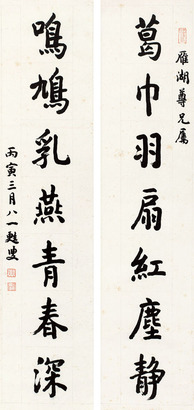 雁湖尊兄属
葛巾羽扇紅塵静
鳴鳩乳燕青春深
丙寅三月八一甦叟